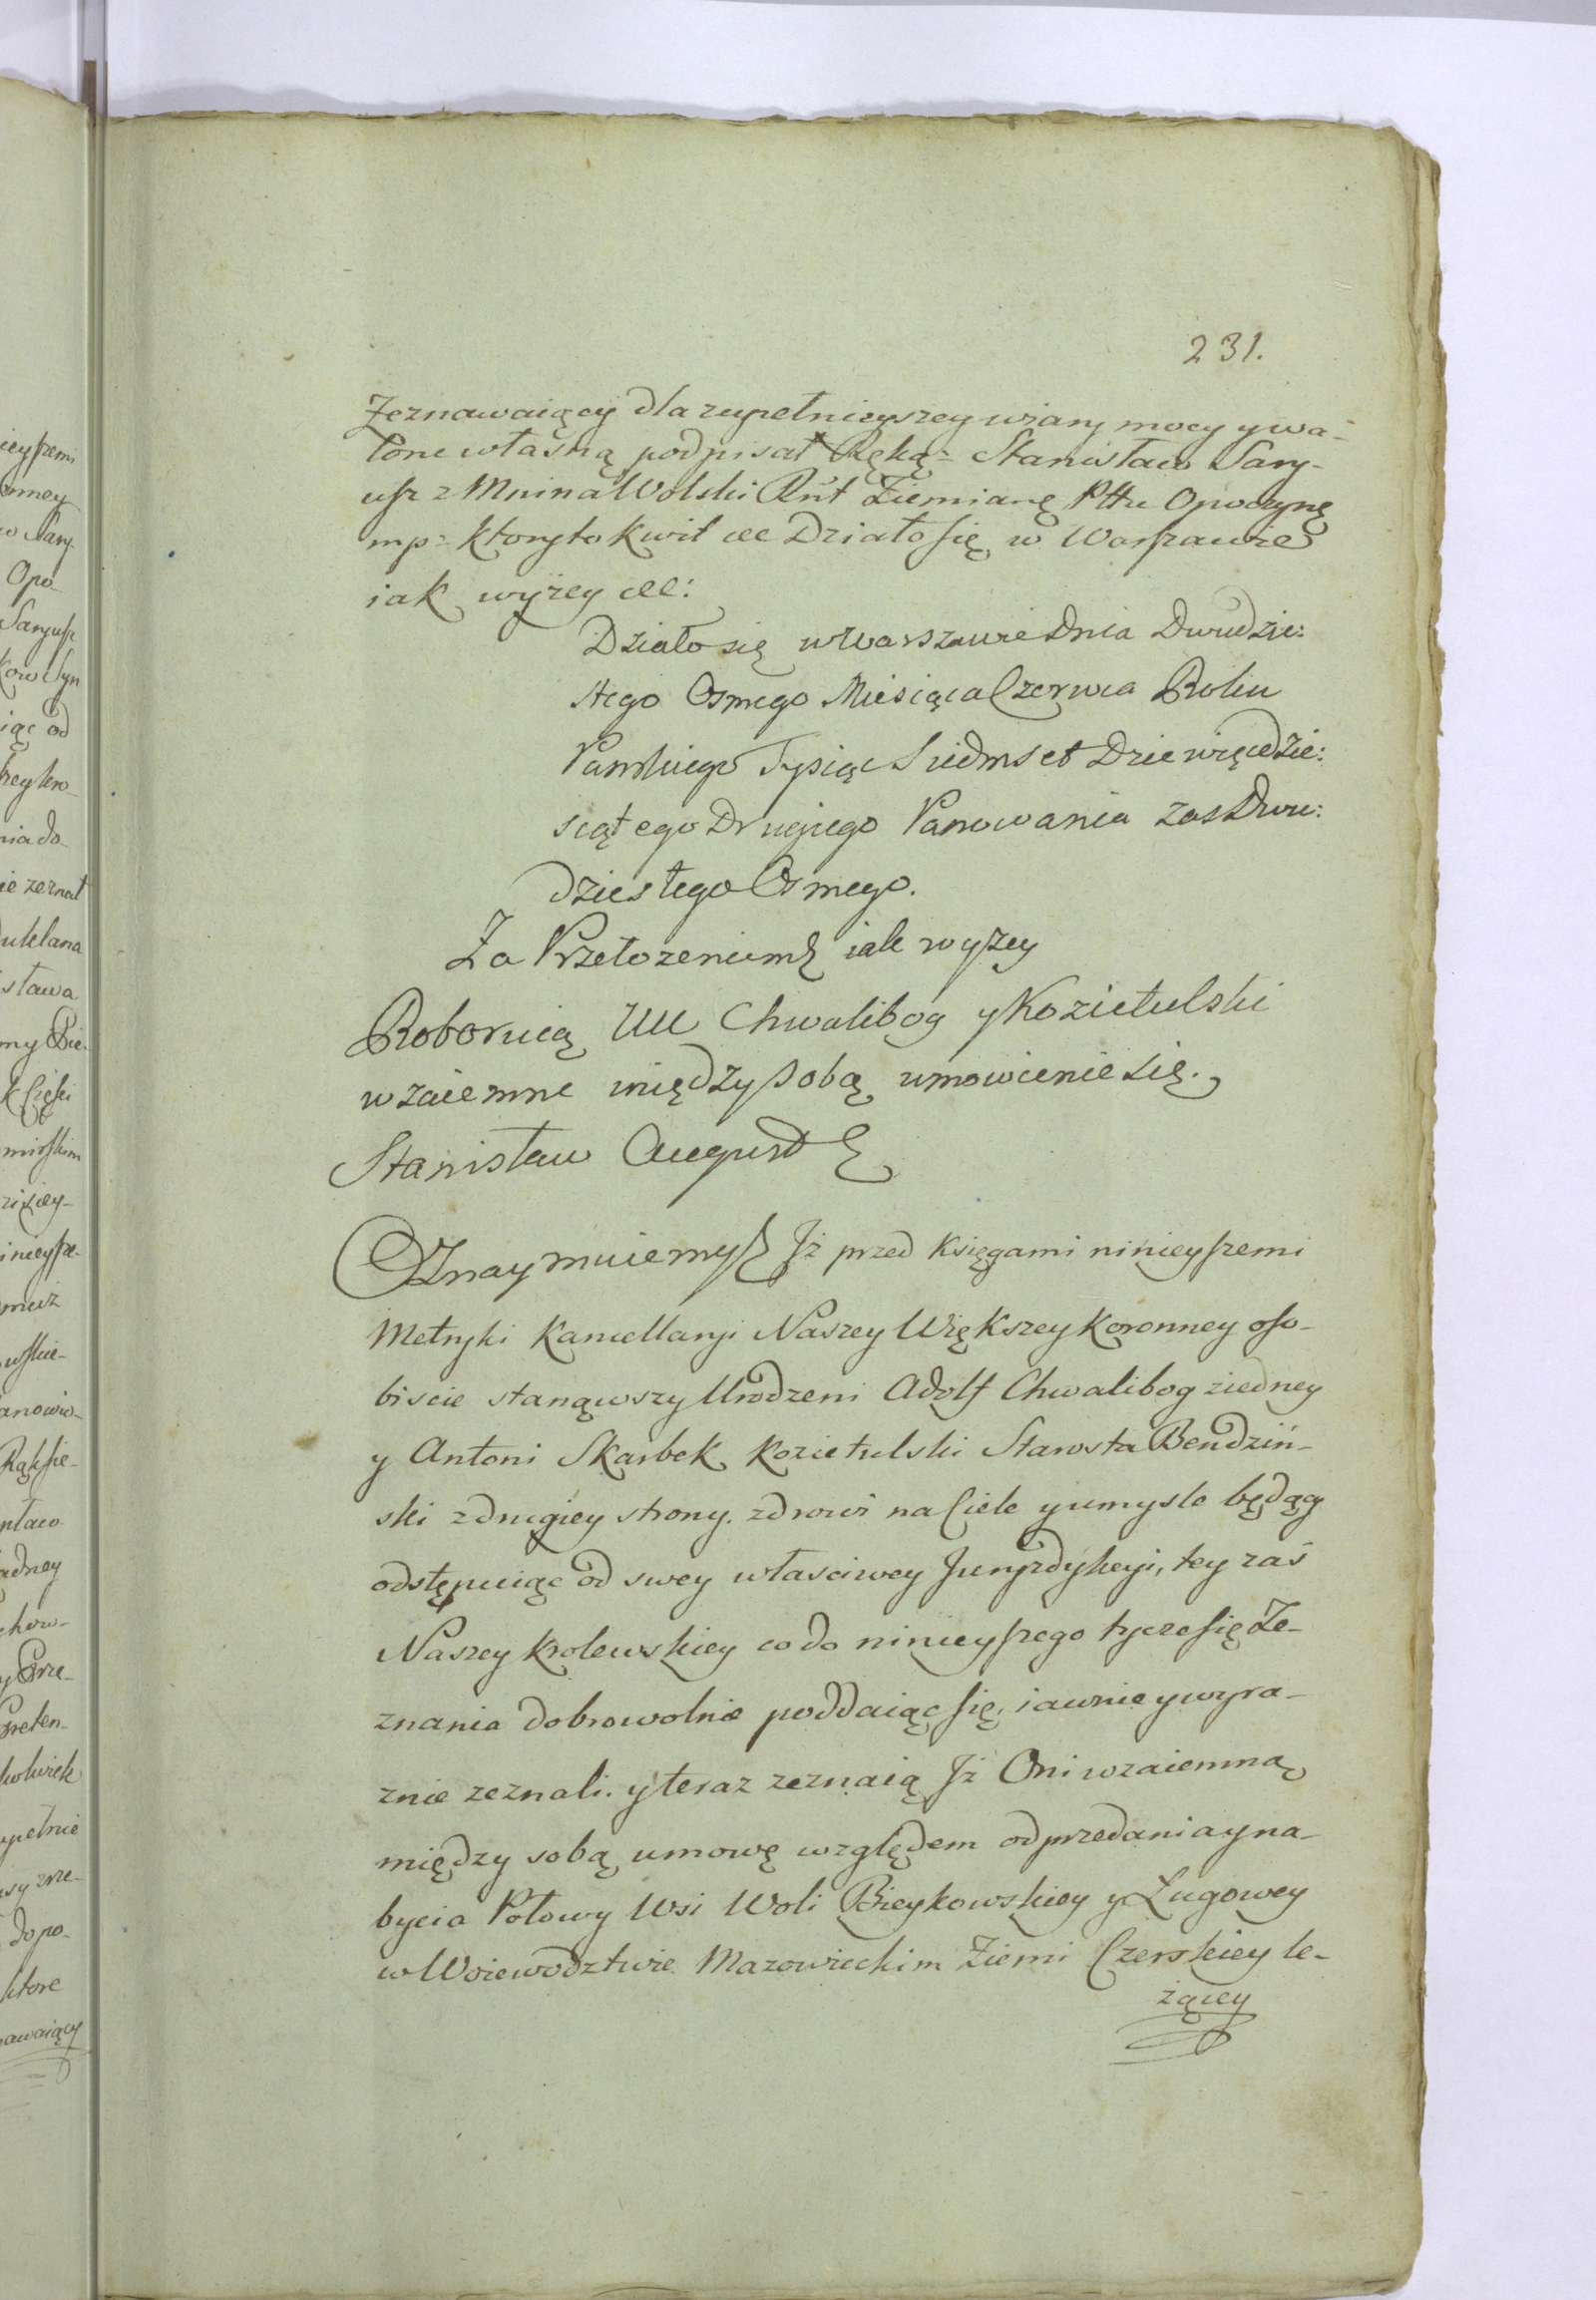 231.
Zeznawaiący dla zupełnieyszey wiary mocy y wa-
loru własną podpisał Ręką = Stanisław Sary-
usz z Mnina Wolski Rńt Ziemianę Pttu Opoczynę
mp: ktoryto kwit &c Działo się w Warszawie
iak wyżey &c:
Działo się w Warszawie Dnia Dwudzie:
stego Osmego Miesiąca Czerwca Roku
Panskiego Tysiąc Siedmset Dziewięcdzie:
siątego Drugiego Panowania zas Dwu:
dziestego Osmego.
Za Przełozeniem iak wyzey
Roboruią UU Chwalibog y Kozietulski
wzaiemne między sobą umowienie się.
Stanisław August
Oznaymuiemy Jż przed Księgami ninieyszemi
Metryki Kancellaryi Naszey Większey Koronney oso-
biscie stanąwszy Urodzeni Adolf Chwalibog ziedney
y Antoni Skarbek Kozietulski Starosta Bendziń-
ski z drugiey strony. zdrowi na Ciele y umysle będąc
odstępuiąc od swey własciwey Juryzdykcyi, tey zaś
Naszey Krolewskiey co do ninieyszego tycze się Ze-
znania dobrowolnie poddaiąc się. iawnie y wyra-
znie zeznali. y teraz zeznaią Jż Oni wzaiemną
między sobą umowę względem odprzedania y na-
bycia Połowy Wsi Woli Bieykowskiey y Ługowey
w Woiewodztwie Mazowieckim Ziemi Czerskiey le-
żącey
ieyszemi
onney
o Sary
Opo-
Saryusz
kow Syn
iąc od
nia do-
ie zeznał
sława
zisiey-
inieysze-
anowio-
adney
Prze-
Preten-
kolwiek
upełnie
dopo-
ktore
nawaiący